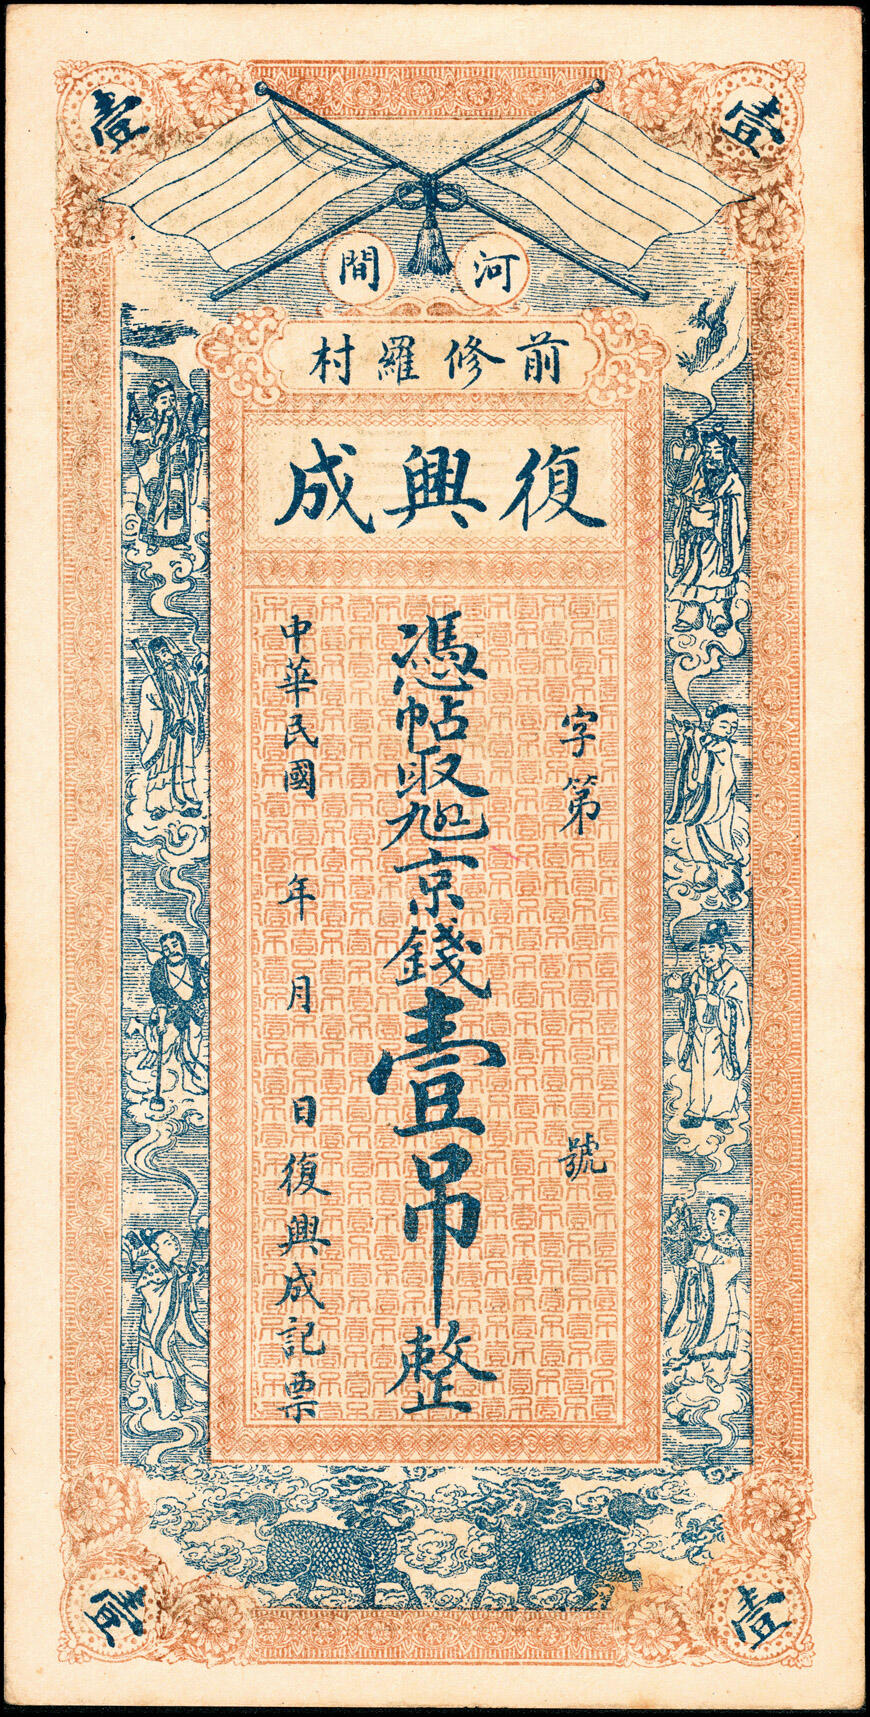 壹
壹
河間
前修羅村
復興成
字第 號
憑帖取京錢壹吊整
中華民國 年 月 日復興成記票
壹
壹